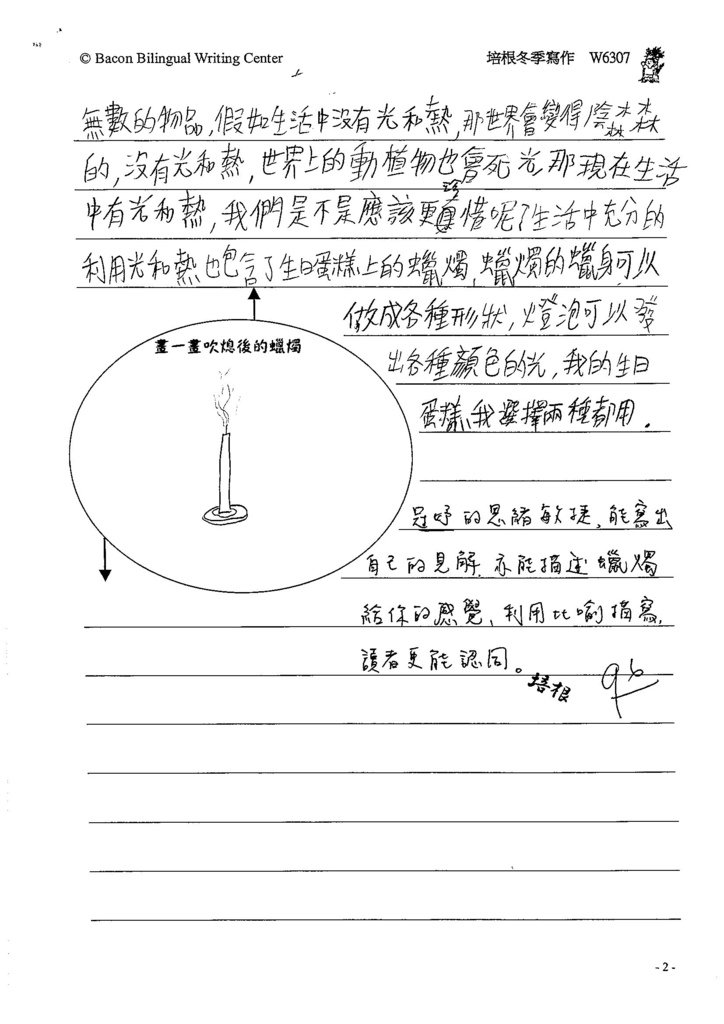 © Bacon Bilingual Writing Center
培根冬季寫作 W6307
無數的物品,假如生活中沒有光和熱,那世界會變得陰森森
的,沒有光和熱,世界上的動植物也會死光,那現在生活
中有光和熱,我們是不是應該更珍惜呢?生活中充分的
利用光和熱也包含了生日蛋糕上的蠟燭,蠟燭的蠟身可以
做成各種形狀,燈泡可以發
畫一畫吹熄後的蠟燭
出各種顏色的光,我的生日
蛋糕,我選擇兩種都用.
的思緒敏捷,能寫出
自己的見解.亦能描述蠟燭
給你的感覺、利用比喻描寫,
讀者更能認同。
培根
96
- 2 -